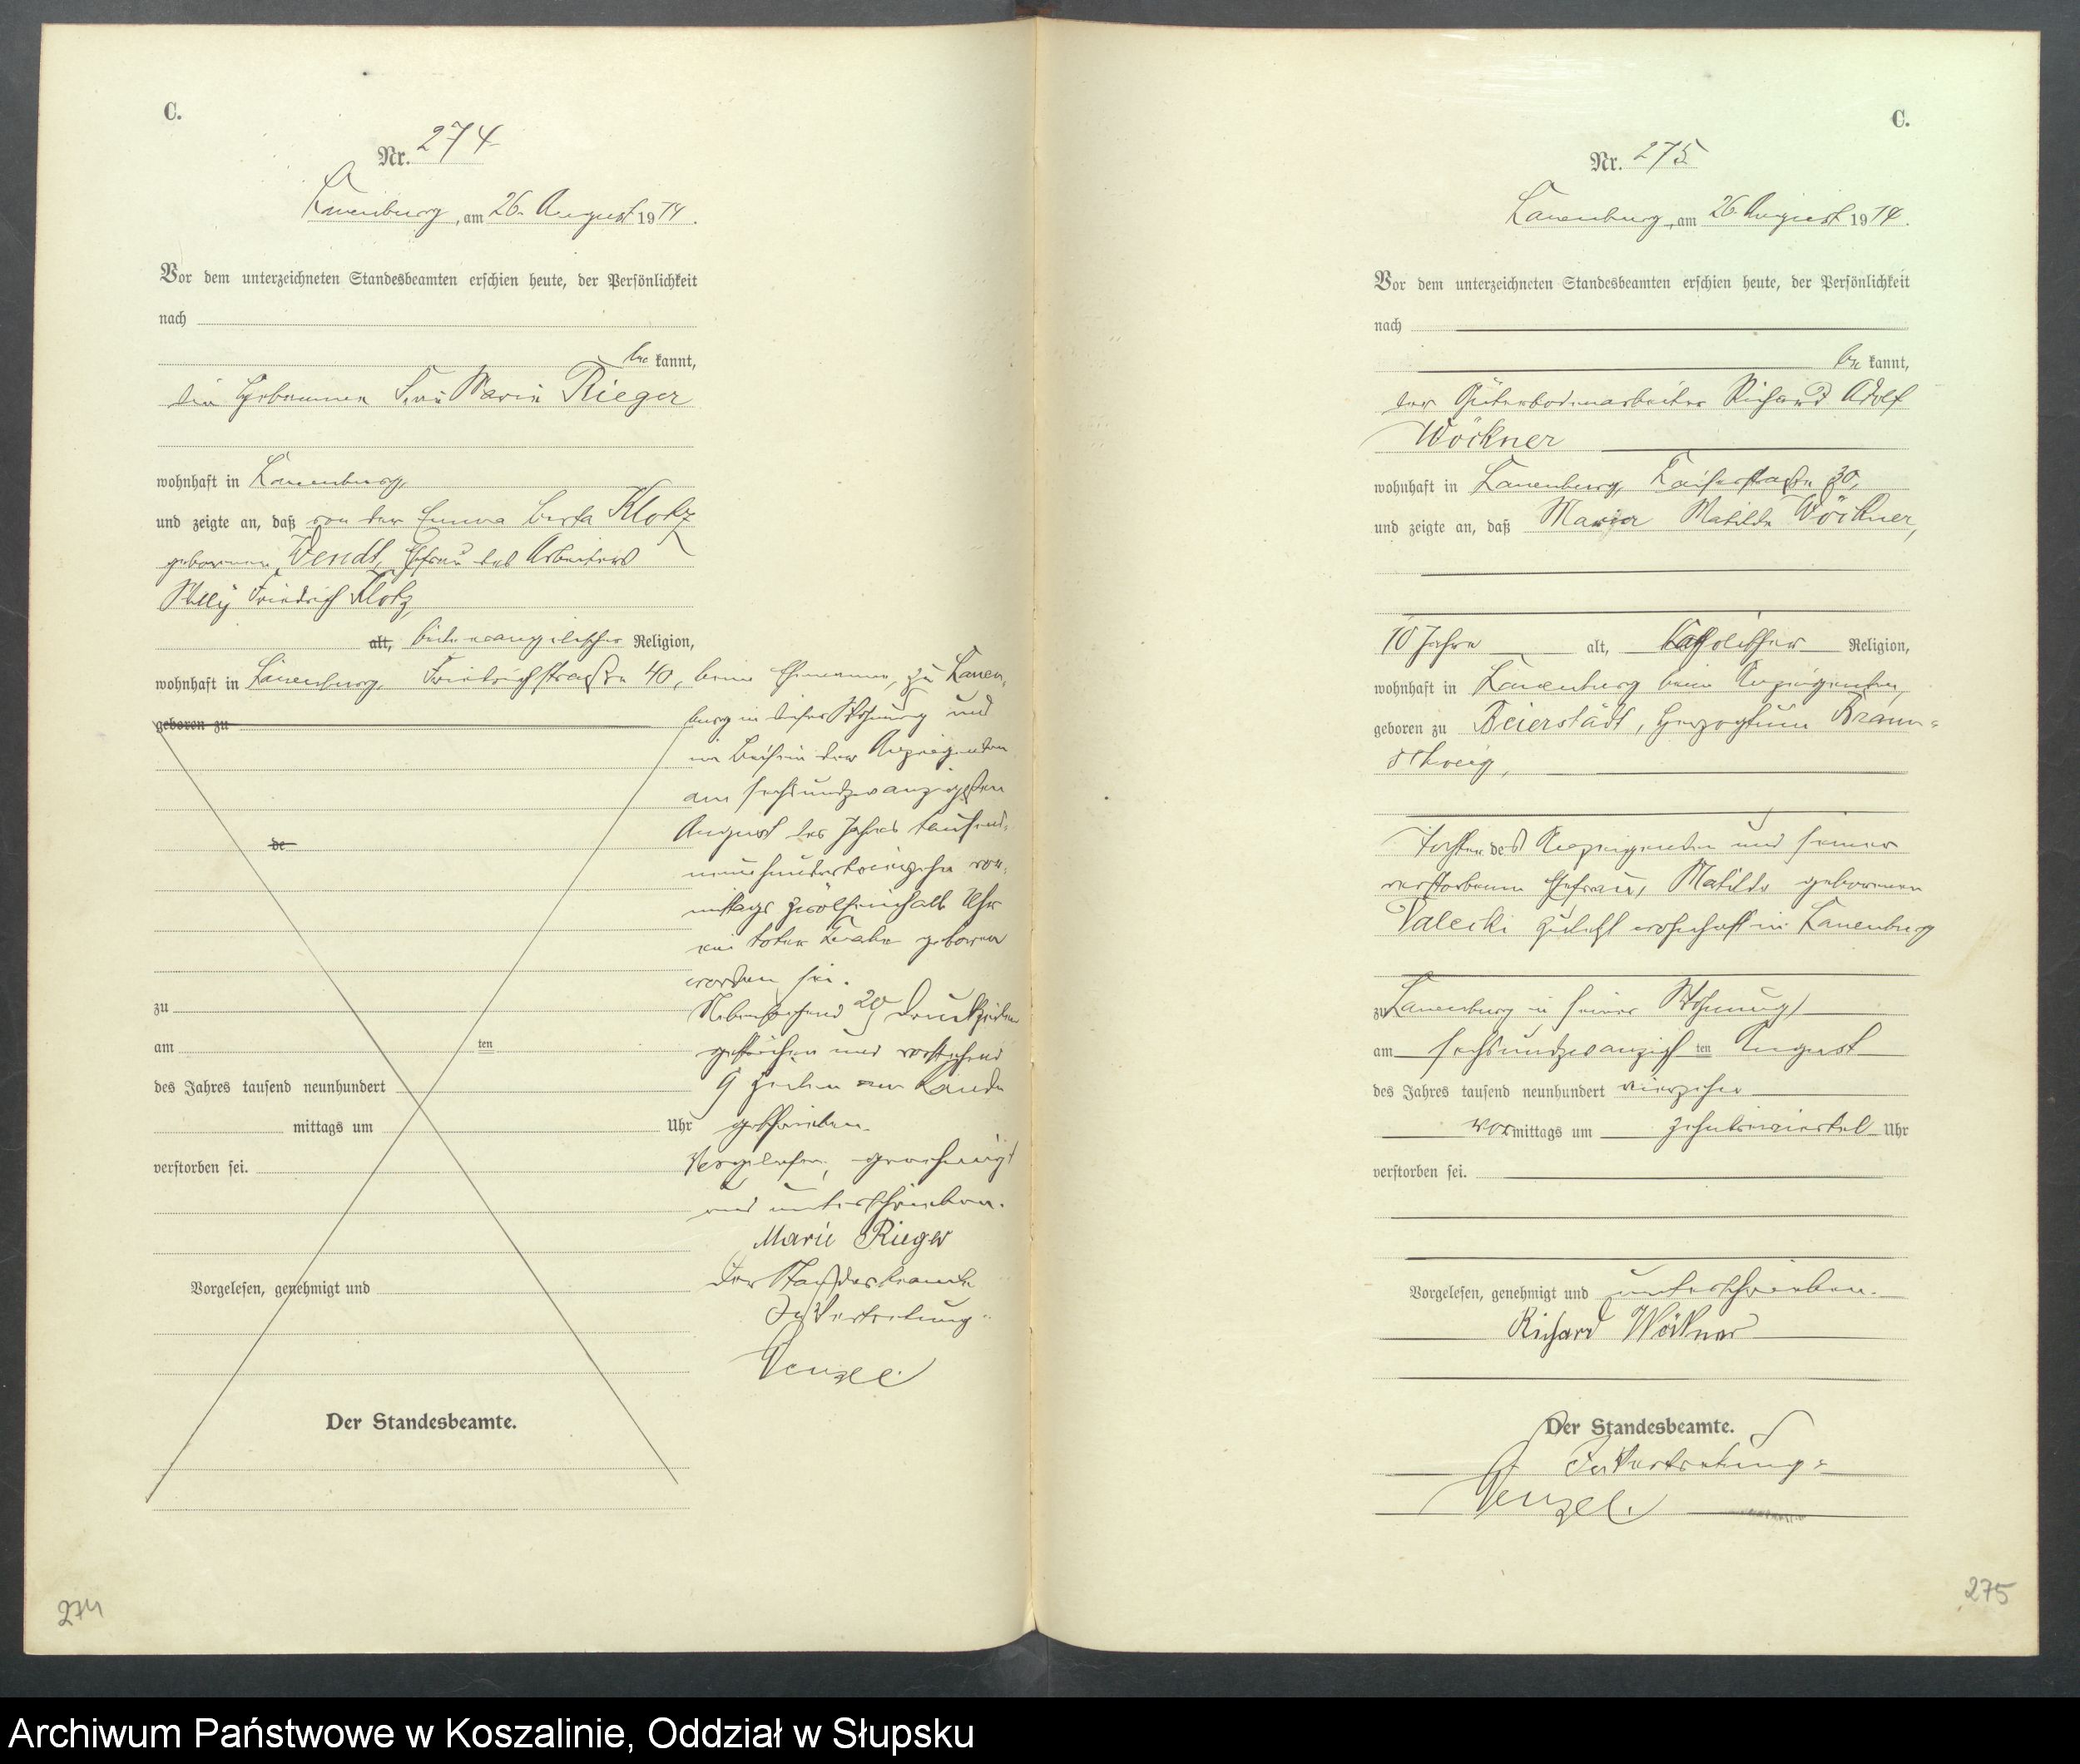 C.
Nr. 274
Lauenburg, am 26. August 1914.
Vor dem unterzeichneten Standesbeamten erschien heute, der Persönlichkeit
nach
be kannt,
die Hebamme Frau Marie Rieger
wohnhaft in Lauenburg,
und zeigte an, daß von der Emma Berta Klotz
geborenen Wendt, Ehefrau des Arbeiters
Willy Friedrich Klotz,
alt, beide evangelischer Religion,
wohnhaft in Lauenburg, Friedrichstraße 40, beim Ehemanne, zu Lauen-
geboren zu
burg in dieser Wohnung und
im Beisein der Anzeigenden
am sechsundzwanzigsten
August des Jahres tausend-
de
neunhundertvierzehn vor-
mittags zwölfeinhalb Uhr
ein toter Knabe geboren
worden sei.
zu
Nebenstehend 20 Druckzeilen
am ten
gestrichen und vorstehend
des Jahres tausend neunhundert
9 Zeilen am Rande
mittags um Uhr
geschrieben.
verstorben sei.
Vorgelesen, genehmigt
und unterschrieben.
Marie Rieger
Vorgelesen, genehmigt und
Der Standesbeamte
In Vertretung.
Wenzel.
Der Standesbeamte.
274
C.
Nr. 275
Lauenburg, am 26. August 1914.
Vor dem unterzeichneten Standesbeamten erschien heute, der Persönlichkeit
nach
be kannt,
der Güterbodenarbeiter Richard Adolf
Wöckner
wohnhaft in Lauenburg, Kaiserstraße 30,
und zeigte an, daß Maria Matilde Wöckner,
10 Jahre alt, katholischer Religion,
wohnhaft in Lauenburg beim Anzeigenden,
geboren zu Beierstädt, Herzogtum Braun-
schweig,
Tochter des Anzeigenden und seiner
verstorbenen Ehefrau, Matilde geborenen
Valecki zuletzt wohnhaft in Lauenburg
zu Lauenburg in seiner Wohnung
am sechsundzwanzigsten August
des Jahres tausend neunhundert vierzehn
vormittags um zehndreiviertel Uhr
verstorben sei.
Vorgelesen, genehmigt und unterschrieben.
Richard Wöckner
Der Standesbeamte.
In Vertretung.
Wenzel.
275
Archiwum Państwowe w Koszalinie, Oddział w Słupsku